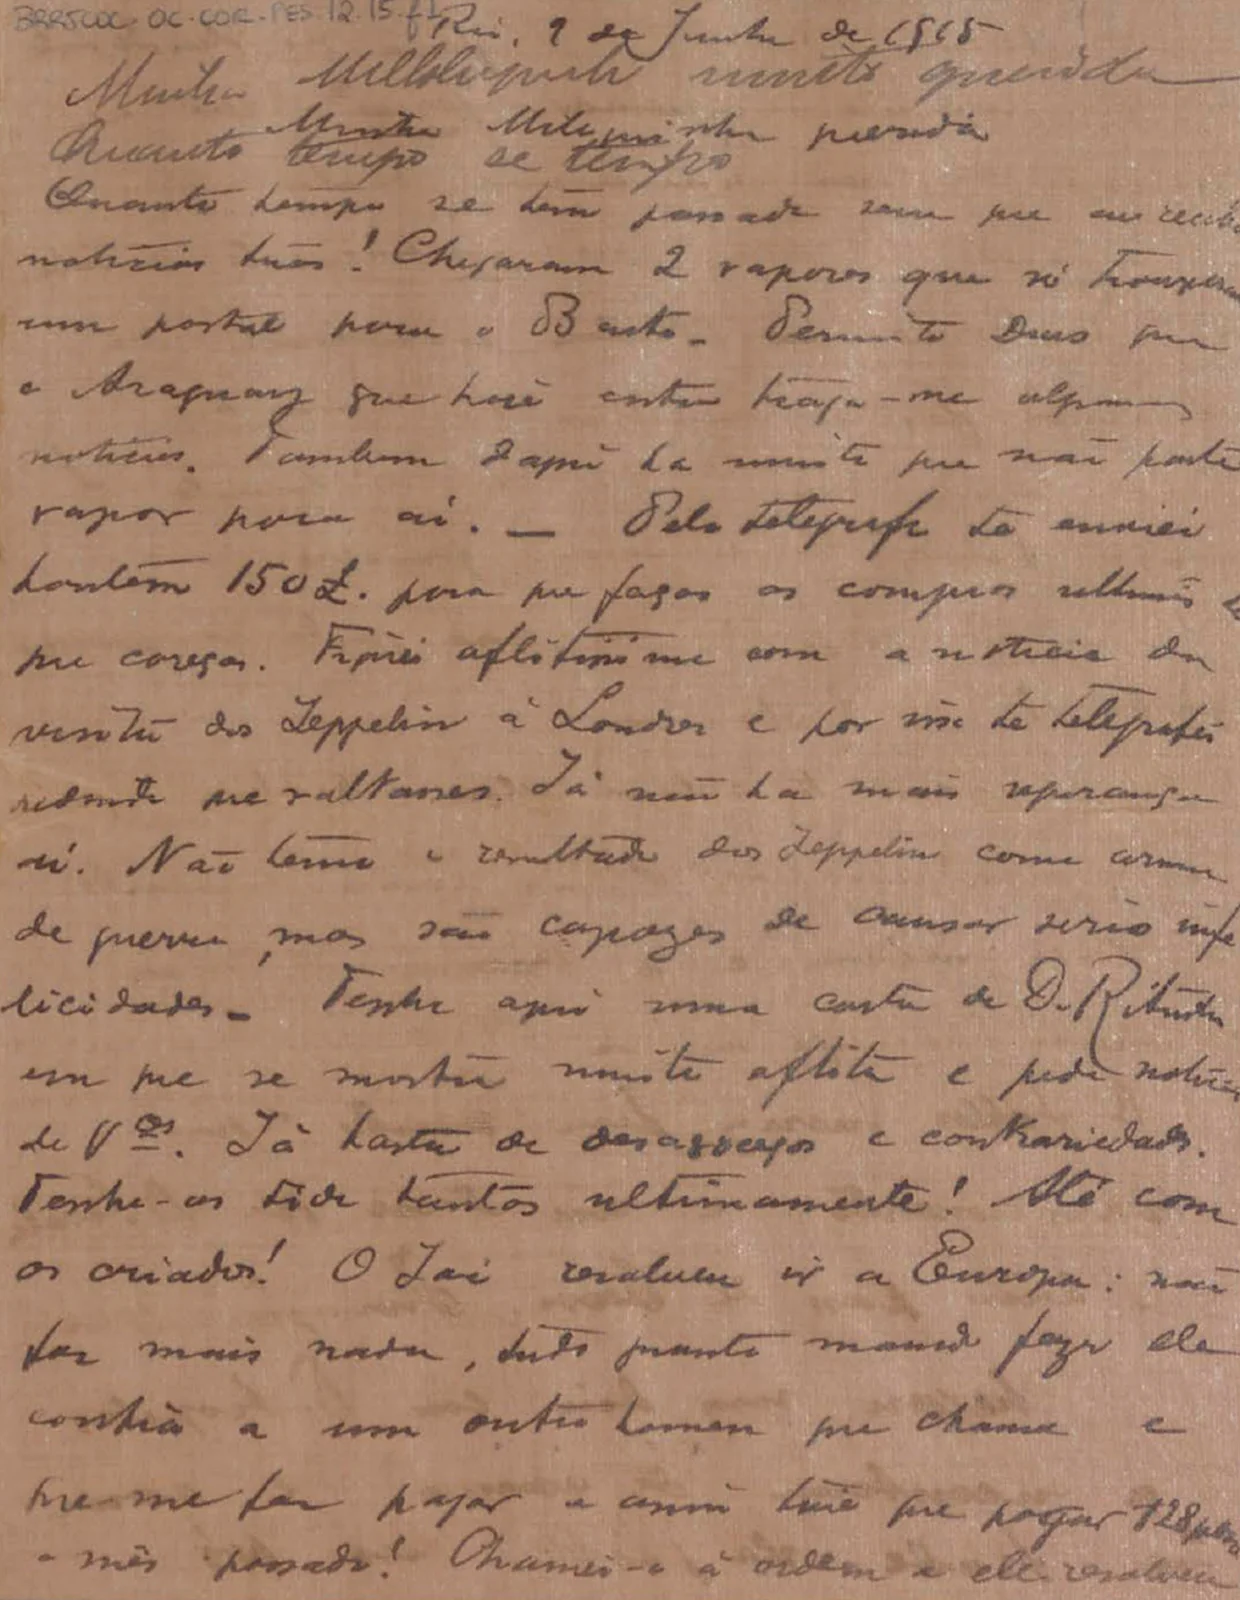 BRRJCOC OC.COR.PES.12.15.f1
Rio, 9 de Junho de 1915
Minha muito querida
Minha querida
Quanto tempo se tempo
Quanto tempo se tem passado sem que eu receba
noticias tuas! Chegaram 2 vapores que só trouxeram
um postal para o Bento. Permitta Deus que
o Araguay que hoje entra traga-me algumas
noticias. Tambem daqui ha muito que não parte
vapor para ai. — Pelo telegrafo te enviei
hontem 150£. para que faças as compras ultimas de
que careças. Fiquei aflitissimo com a noticia da
visita dos Zeppelin á Londres e por isso te telegrafei
pedindo que voltasses. Já não ha mais esperança
ai. Não temo o resultado dos Zeppelin como arma
de guerra, mas são capazes de causar serias infe
licidades. Tenho aqui uma carta de D. Ritinha
em que se mostra muito aflita e pede noticias
de Vᶜᵉˢ. Já basta de desassocegos e contrariedades.
Tenho-os tido tantos ultimamente! Até com
os criados! O Jai resolveu ir a Europa: não
faz mais nada, tudo quanto mando fazer ele
confia a um outro homem que chama e
que me faz pagar e assim tive que pagar 128
o mês passado! Chamei-o á ordem e ele resolveu